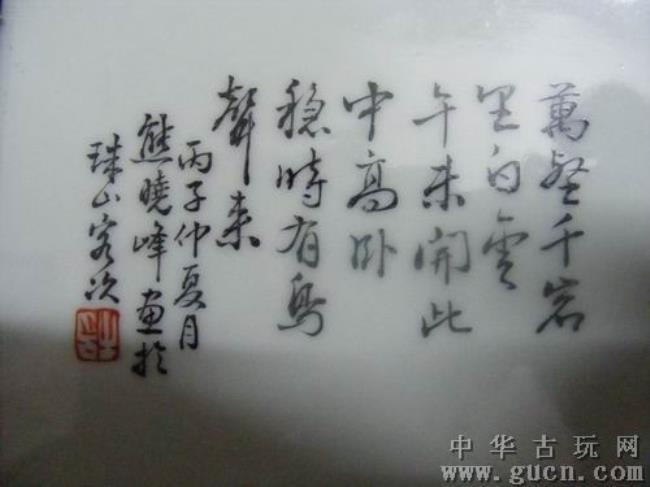 萬壑千岩
里白雲
午未開此
中高卧
穏時有鳥
聲来
丙子仲夏月
熊曉峰畫於
珠山客次
中华古玩网
www.gucn.com